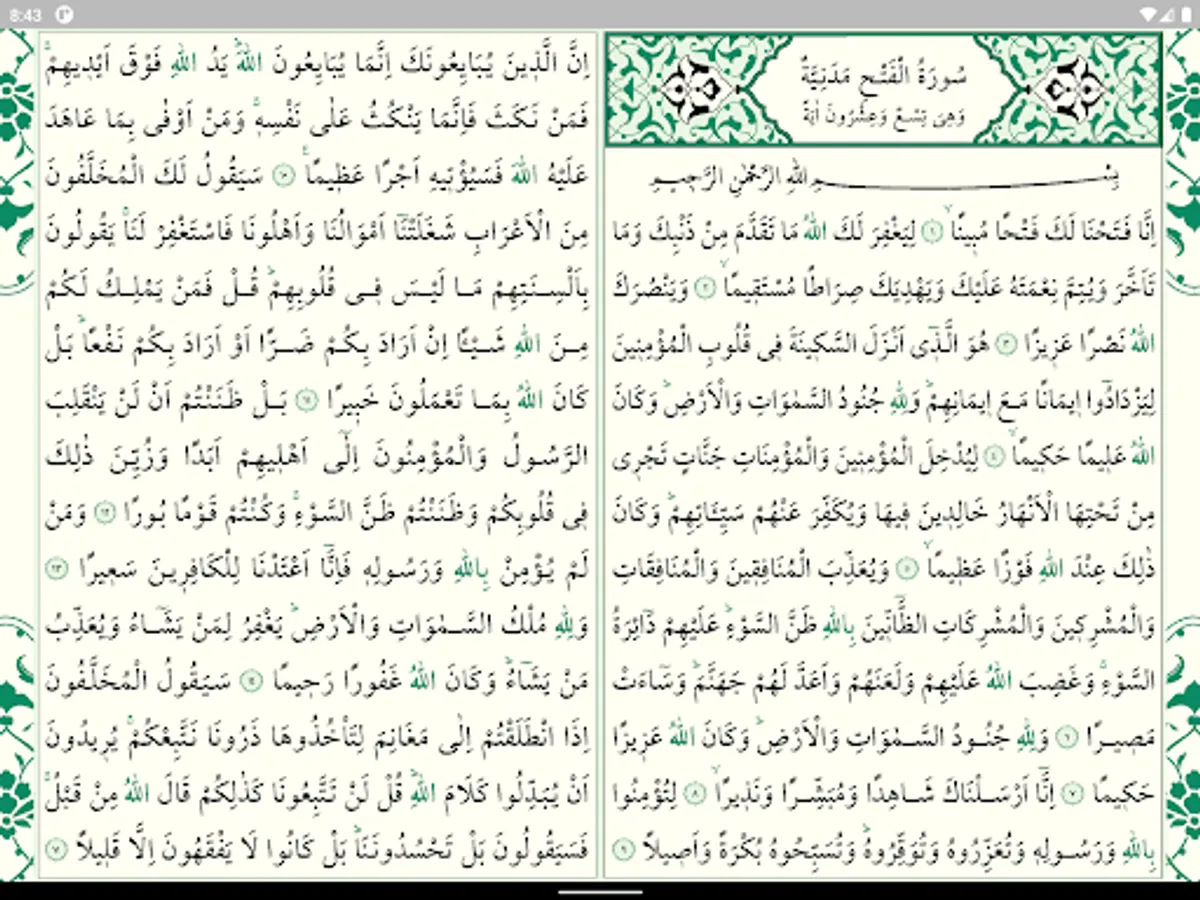 8:43
سُورَةُ الْفَتْحِ مَدَنِيَّةٌ
وَهِيَ تِسْعٌ وَعِشْرُونَ اٰيَةً
بِسْمِ اللّٰهِ الرَّحْمٰنِ الرَّحِيمِ
اِنَّا فَتَحْنَا لَكَ فَتْحًا مُبِينًاۙ ﴿١﴾ لِيَغْفِرَ لَكَ اللّٰهُ مَا تَقَدَّمَ مِنْ ذَنْبِكَ وَمَا
تَاَخَّرَ وَيُتِمَّ نِعْمَتَهُ عَلَيْكَ وَيَهْدِيَكَ صِرَاطًا مُسْتَقِيمًاۙ ﴿٢﴾ وَيَنْصُرَكَ
اللّٰهُ نَصْرًا عَزِيزًا ﴿٣﴾ هُوَ الَّذِٓي اَنْزَلَ السَّكِينَةَ فِي قُلُوبِ الْمُؤْمِنِينَ
لِيَزْدَادُٓوا اِيمَانًا مَعَ اِيمَانِهِمْۜ وَلِلّٰهِ جُنُودُ السَّمٰوَاتِ وَالْاَرْضِۜ وَكَانَ
اللّٰهُ عَلِيمًا حَكِيمًاۙ ﴿٤﴾ لِيُدْخِلَ الْمُؤْمِنِينَ وَالْمُؤْمِنَاتِ جَنَّاتٍ تَجْرِي
مِنْ تَحْتِهَا الْاَنْهَارُ خَالِدِينَ فِيهَا وَيُكَفِّرَ عَنْهُمْ سَيِّـَٔاتِهِمْۜ وَكَانَ
ذٰلِكَ عِنْدَ اللّٰهِ فَوْزًا عَظِيمًاۙ ﴿٥﴾ وَيُعَذِّبَ الْمُنَافِقِينَ وَالْمُنَافِقَاتِ
وَالْمُشْرِكِينَ وَالْمُشْرِكَاتِ الظَّٓانِّينَ بِاللّٰهِ ظَنَّ السَّوْءِۜ عَلَيْهِمْ دَٓائِرَةُ
السَّوْءِۚ وَغَضِبَ اللّٰهُ عَلَيْهِمْ وَلَعَنَهُمْ وَاَعَدَّ لَهُمْ جَهَنَّمَۜ وَسَٓاءَتْ
مَصِيرًا ﴿٦﴾ وَلِلّٰهِ جُنُودُ السَّمٰوَاتِ وَالْاَرْضِۜ وَكَانَ اللّٰهُ عَزِيزًا
حَكِيمًا ﴿٧﴾ اِنَّٓا اَرْسَلْنَاكَ شَاهِدًا وَمُبَشِّرًا وَنَذِيرًاۙ ﴿٨﴾ لِتُؤْمِنُوا
بِاللّٰهِ وَرَسُولِهِ وَتُعَزِّرُوهُ وَتُوَقِّرُوهُۜ وَتُسَبِّحُوهُ بُكْرَةً وَاَصِيلًا ﴿٩﴾
اِنَّ الَّذِينَ يُبَايِعُونَكَ اِنَّمَا يُبَايِعُونَ اللّٰهَۜ يَدُ اللّٰهِ فَوْقَ اَيْدِيهِمْۚ
فَمَنْ نَكَثَ فَاِنَّمَا يَنْكُثُ عَلٰى نَفْسِهِۚ وَمَنْ اَوْفٰى بِمَا عَاهَدَ
عَلَيْهُ اللّٰهَ فَسَيُؤْتِيهِ اَجْرًا عَظِيمًاۚ ﴿١٠﴾ سَيَقُولُ لَكَ الْمُخَلَّفُونَ
مِنَ الْاَعْرَابِ شَغَلَتْنَٓا اَمْوَالُنَا وَاَهْلُونَا فَاسْتَغْفِرْ لَنَاۚ يَقُولُونَ
بِاَلْسِنَتِهِمْ مَا لَيْسَ فِي قُلُوبِهِمْۜ قُلْ فَمَنْ يَمْلِكُ لَكُمْ
مِنَ اللّٰهِ شَيْـًٔا اِنْ اَرَادَ بِكُمْ ضَرًّا اَوْ اَرَادَ بِكُمْ نَفْعًاۜ بَلْ
كَانَ اللّٰهُ بِمَا تَعْمَلُونَ خَبِيرًا ﴿١١﴾ بَلْ ظَنَنْتُمْ اَنْ لَنْ يَنْقَلِبَ
الرَّسُولُ وَالْمُؤْمِنُونَ اِلٰٓى اَهْلِيهِمْ اَبَدًا وَزُيِّنَ ذٰلِكَ
فِي قُلُوبِكُمْ وَظَنَنْتُمْ ظَنَّ السَّوْءِۚ وَكُنْتُمْ قَوْمًا بُورًا ﴿١٢﴾ وَمَنْ
لَمْ يُؤْمِنْ بِاللّٰهِ وَرَسُولِهِ فَاِنَّٓا اَعْتَدْنَا لِلْكَافِرِينَ سَعِيرًا ﴿١٣﴾
وَلِلّٰهِ مُلْكُ السَّمٰوَاتِ وَالْاَرْضِۜ يَغْفِرُ لِمَنْ يَشَٓاءُ وَيُعَذِّبُ
مَنْ يَشَٓاءُۜ وَكَانَ اللّٰهُ غَفُورًا رَحِيمًا ﴿١٤﴾ سَيَقُولُ الْمُخَلَّفُونَ
اِذَا انْطَلَقْتُمْ اِلٰى مَغَانِمَ لِتَأْخُذُوهَا ذَرُونَا نَتَّبِعْكُمْۚ يُرِيدُونَ
اَنْ يُبَدِّلُوا كَلَامَ اللّٰهِۜ قُلْ لَنْ تَتَّبِعُونَا كَذٰلِكُمْ قَالَ اللّٰهُ مِنْ قَبْلُۚ
فَسَيَقُولُونَ بَلْ تَحْسُدُونَنَاۜ بَلْ كَانُوا لَا يَفْقَهُونَ اِلَّا قَلِيلًا ﴿١٥﴾